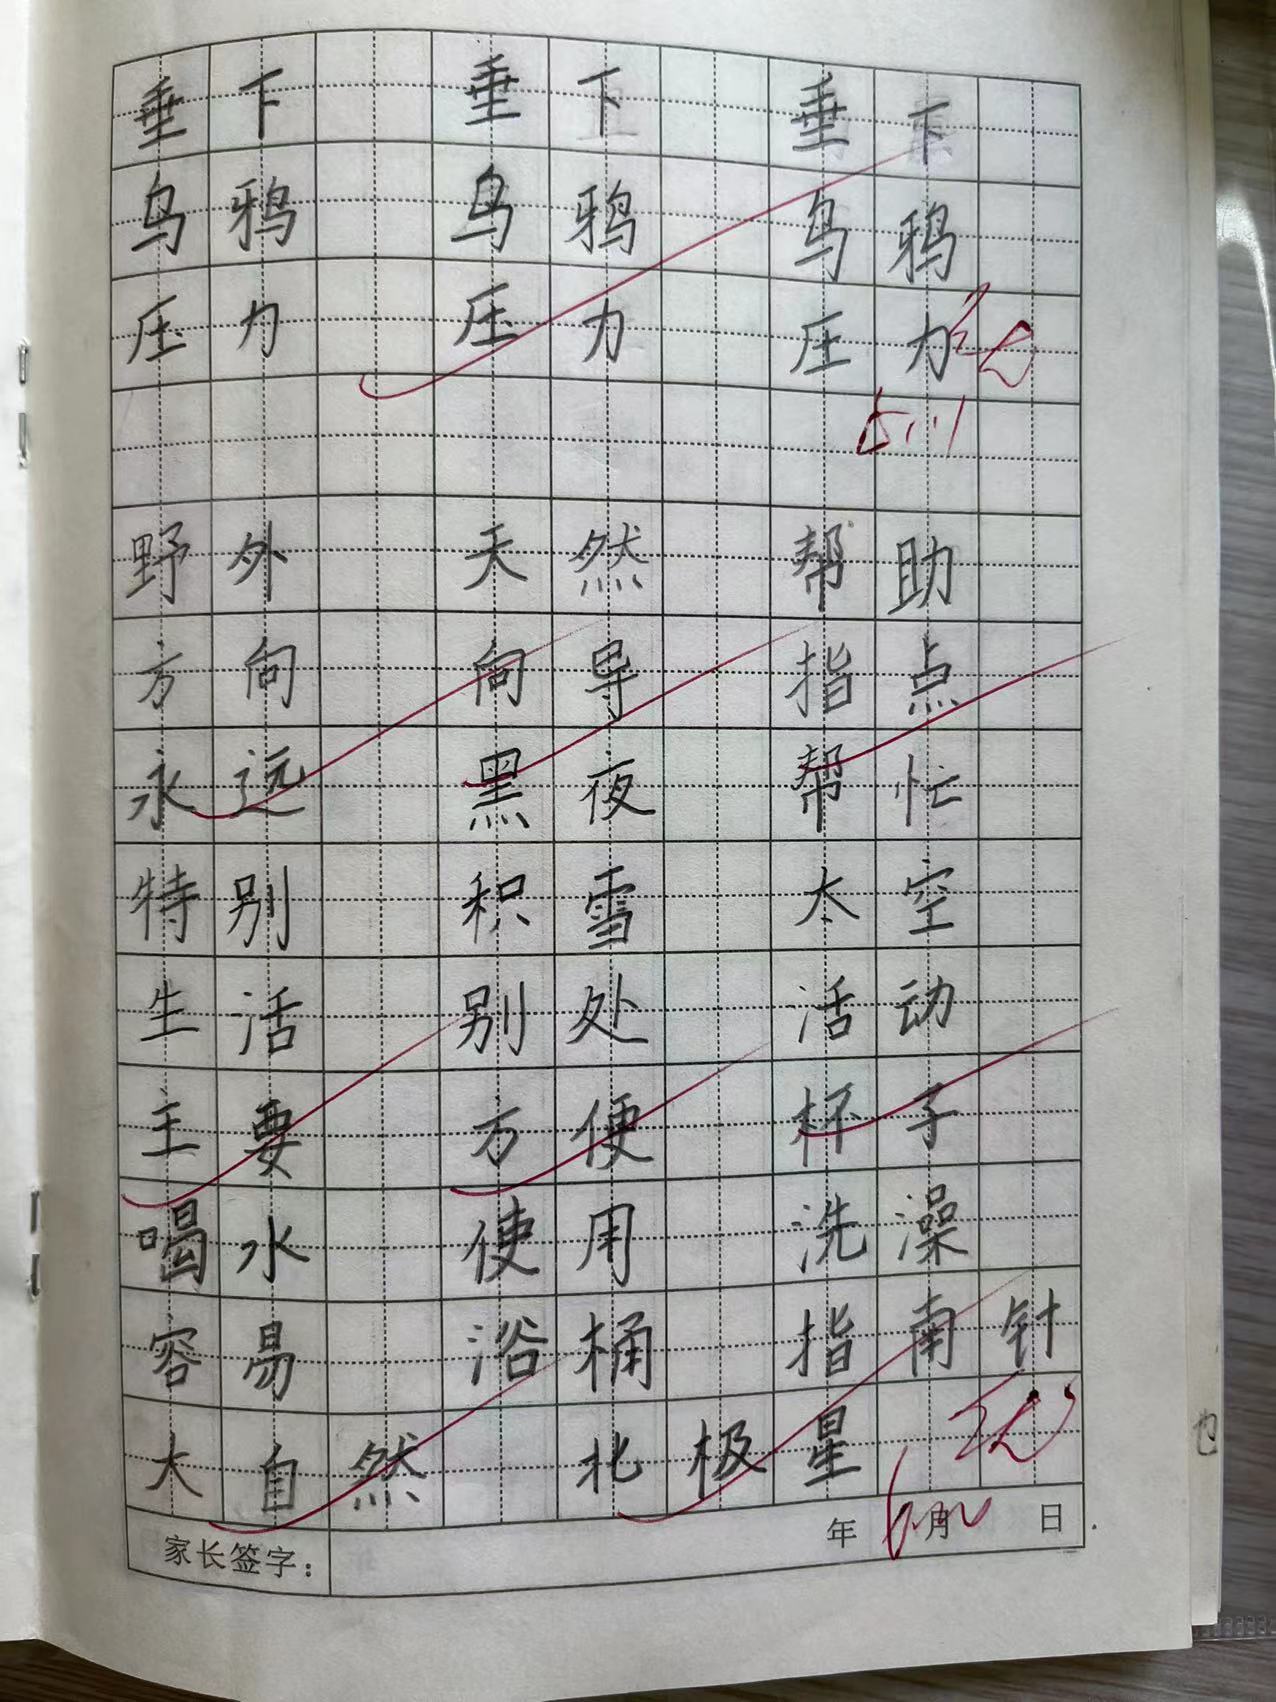 垂下 垂下 垂下
乌鸦 乌鸦 乌鸦
压力 压力 压力
野外 天然 帮助
方向 向导 指点
永远 黑夜 帮忙
特别 积雪 太空
生活 别处 活动
主要 方便 杯子
喝水 使用 洗澡
容易 浴桶 指南针
大自然 北极星
家长签字： 年 月 日